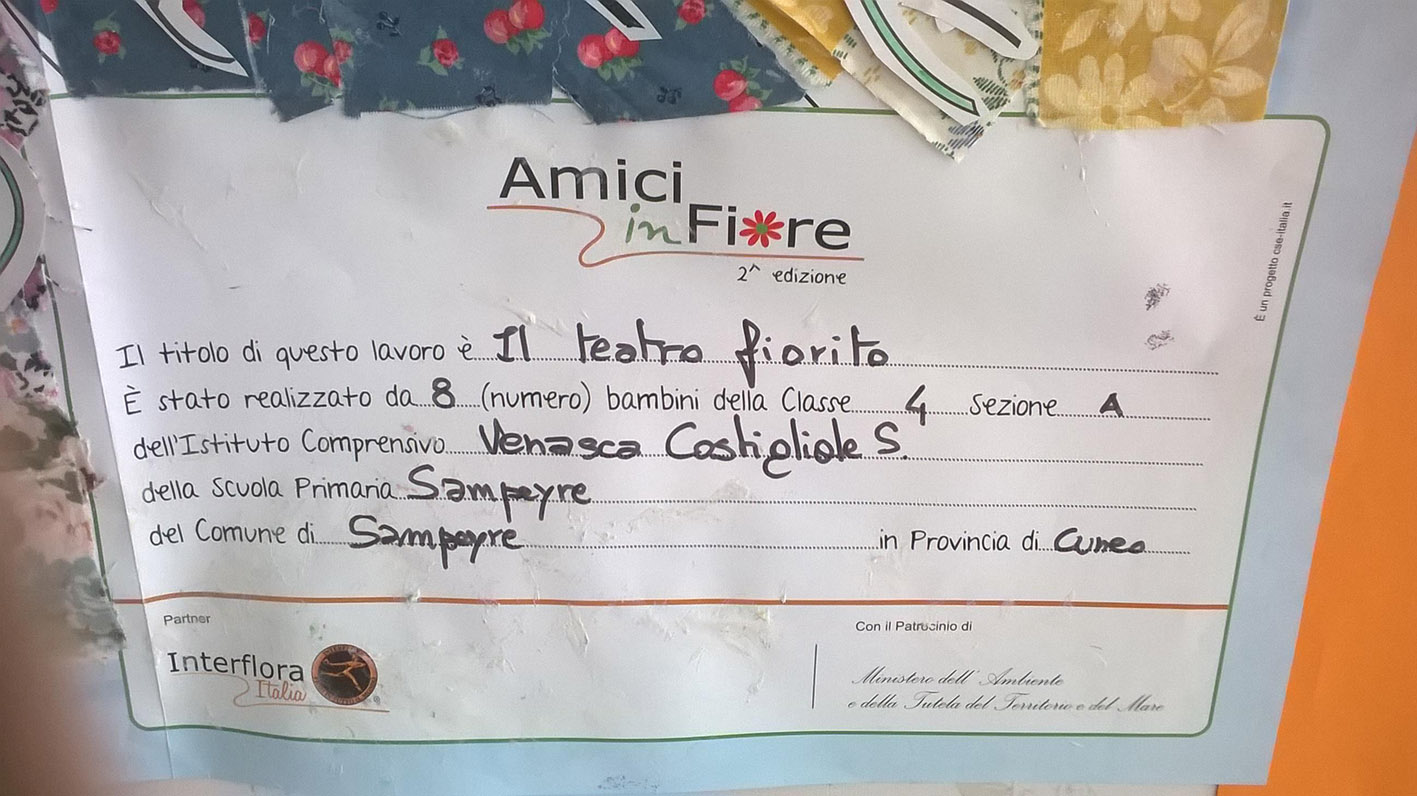 Amici
in Fiore
2^ edizione
È un progetto cse-italia.it
Il titolo di questo lavoro è Il teatro fiorito
È stato realizzato da 8 (numero) bambini della Classe 4 Sezione A
dell'Istituto Comprensivo Venasca Costigliole S.
della Scuola Primaria Sampeyre
del Comune di Sampeyre in Provincia di Cuneo
Partner
Interflora
Italia
Con il Patrocinio di
Ministero dell'Ambiente
e della Tutela del Territorio e del Mare